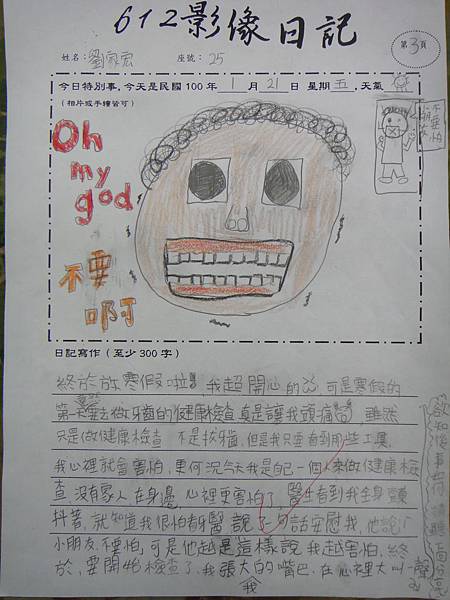 612影像日記
第3頁
姓名：劉家宏 座號：25
今日特別事，今天是民國 100 年 1 月 21 日 星期 五，天氣
（相片或手繪皆可）
Oh
my
god
不要
啊
不要怕
日記寫作（至少 300 字）
終於放寒假啦！我超開心的，可是寒假的
第一天要去做牙齒的健康檢查真是讓我頭痛，雖然
只是做健康檢查，不是拔牙齒，但是我只要看到那些工具，
我心裡就會害怕，更何況今天我是自己一個人來做健康檢
查，沒有家人在身邊，心裡更害怕了，醫生看到我全身顫
抖著，就知道我很怕看牙醫，說了句話安慰我，他說：
小朋友不要怕，可是他越是這樣說我越害怕，終
於，要開始檢查了，我張大的嘴巴，在心裡大叫一聲
我
欲知後事如何 請聽 分享